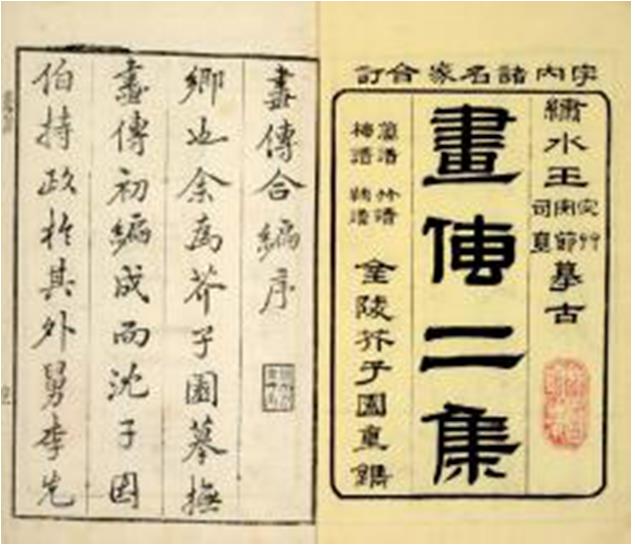 宇內諸名家合訂
繡水王宓艸安節司直摹古
畫傳二集
蘭譜 竹譜
梅譜 菊譜
金陵芥子園重鐫
畫傳合編序
鄉也余為芥子園摹撫
畫傳初編成而沈子因
伯持政於其外舅李先